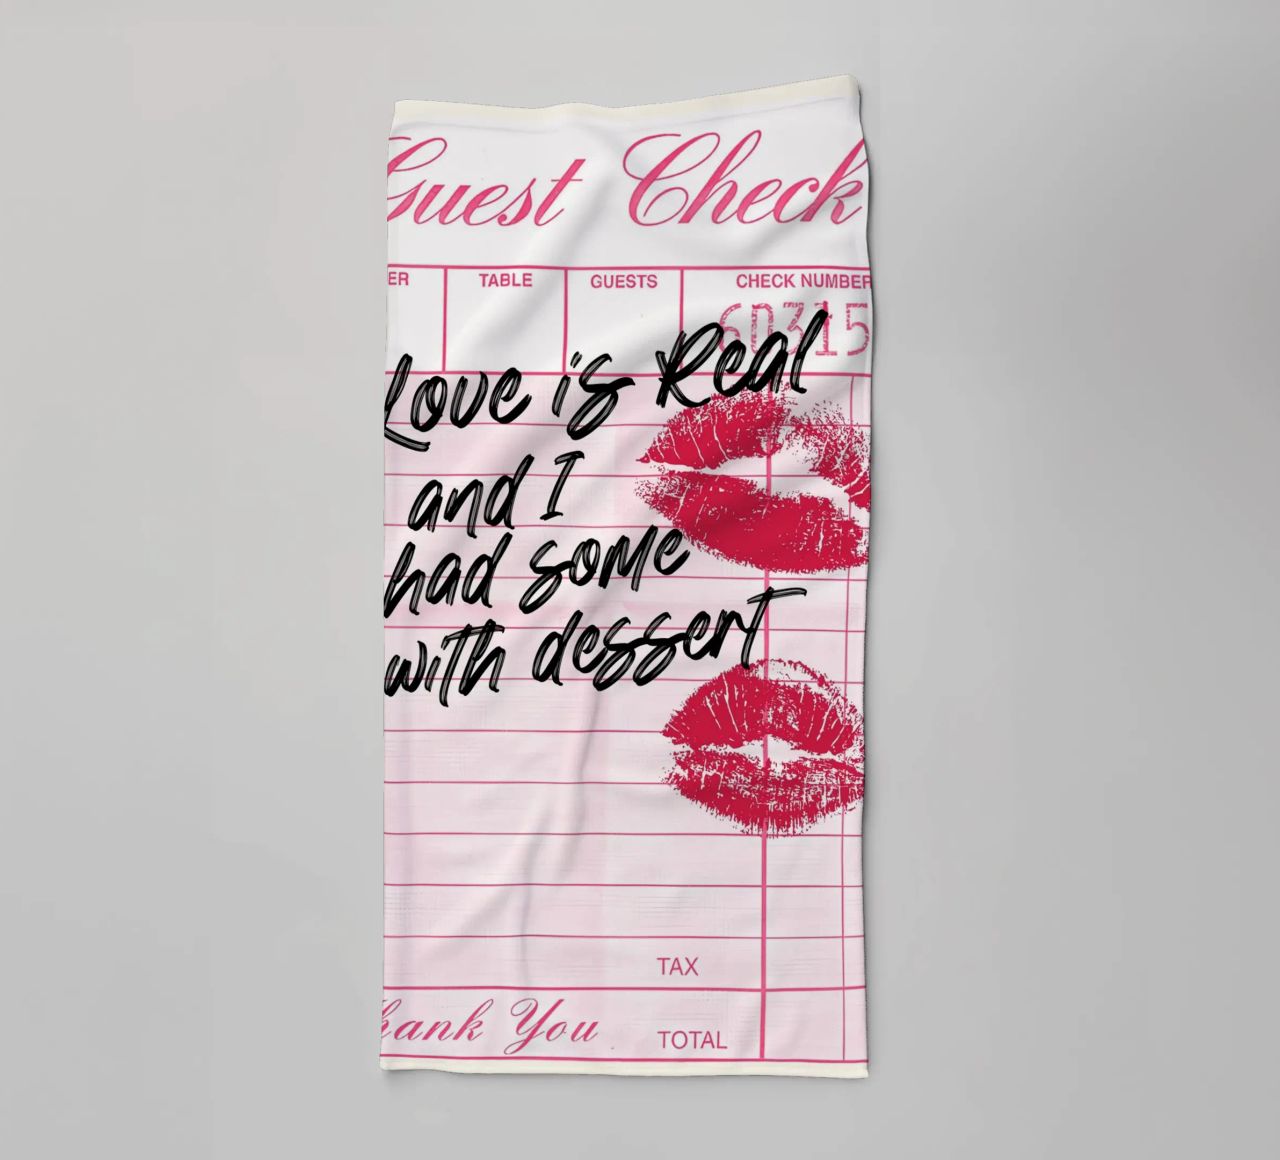 Guest Check
ER TABLE GUESTS CHECK NUMBER
60315
Love is Real
and I
had some
with dessert
TAX
hank You
TOTAL